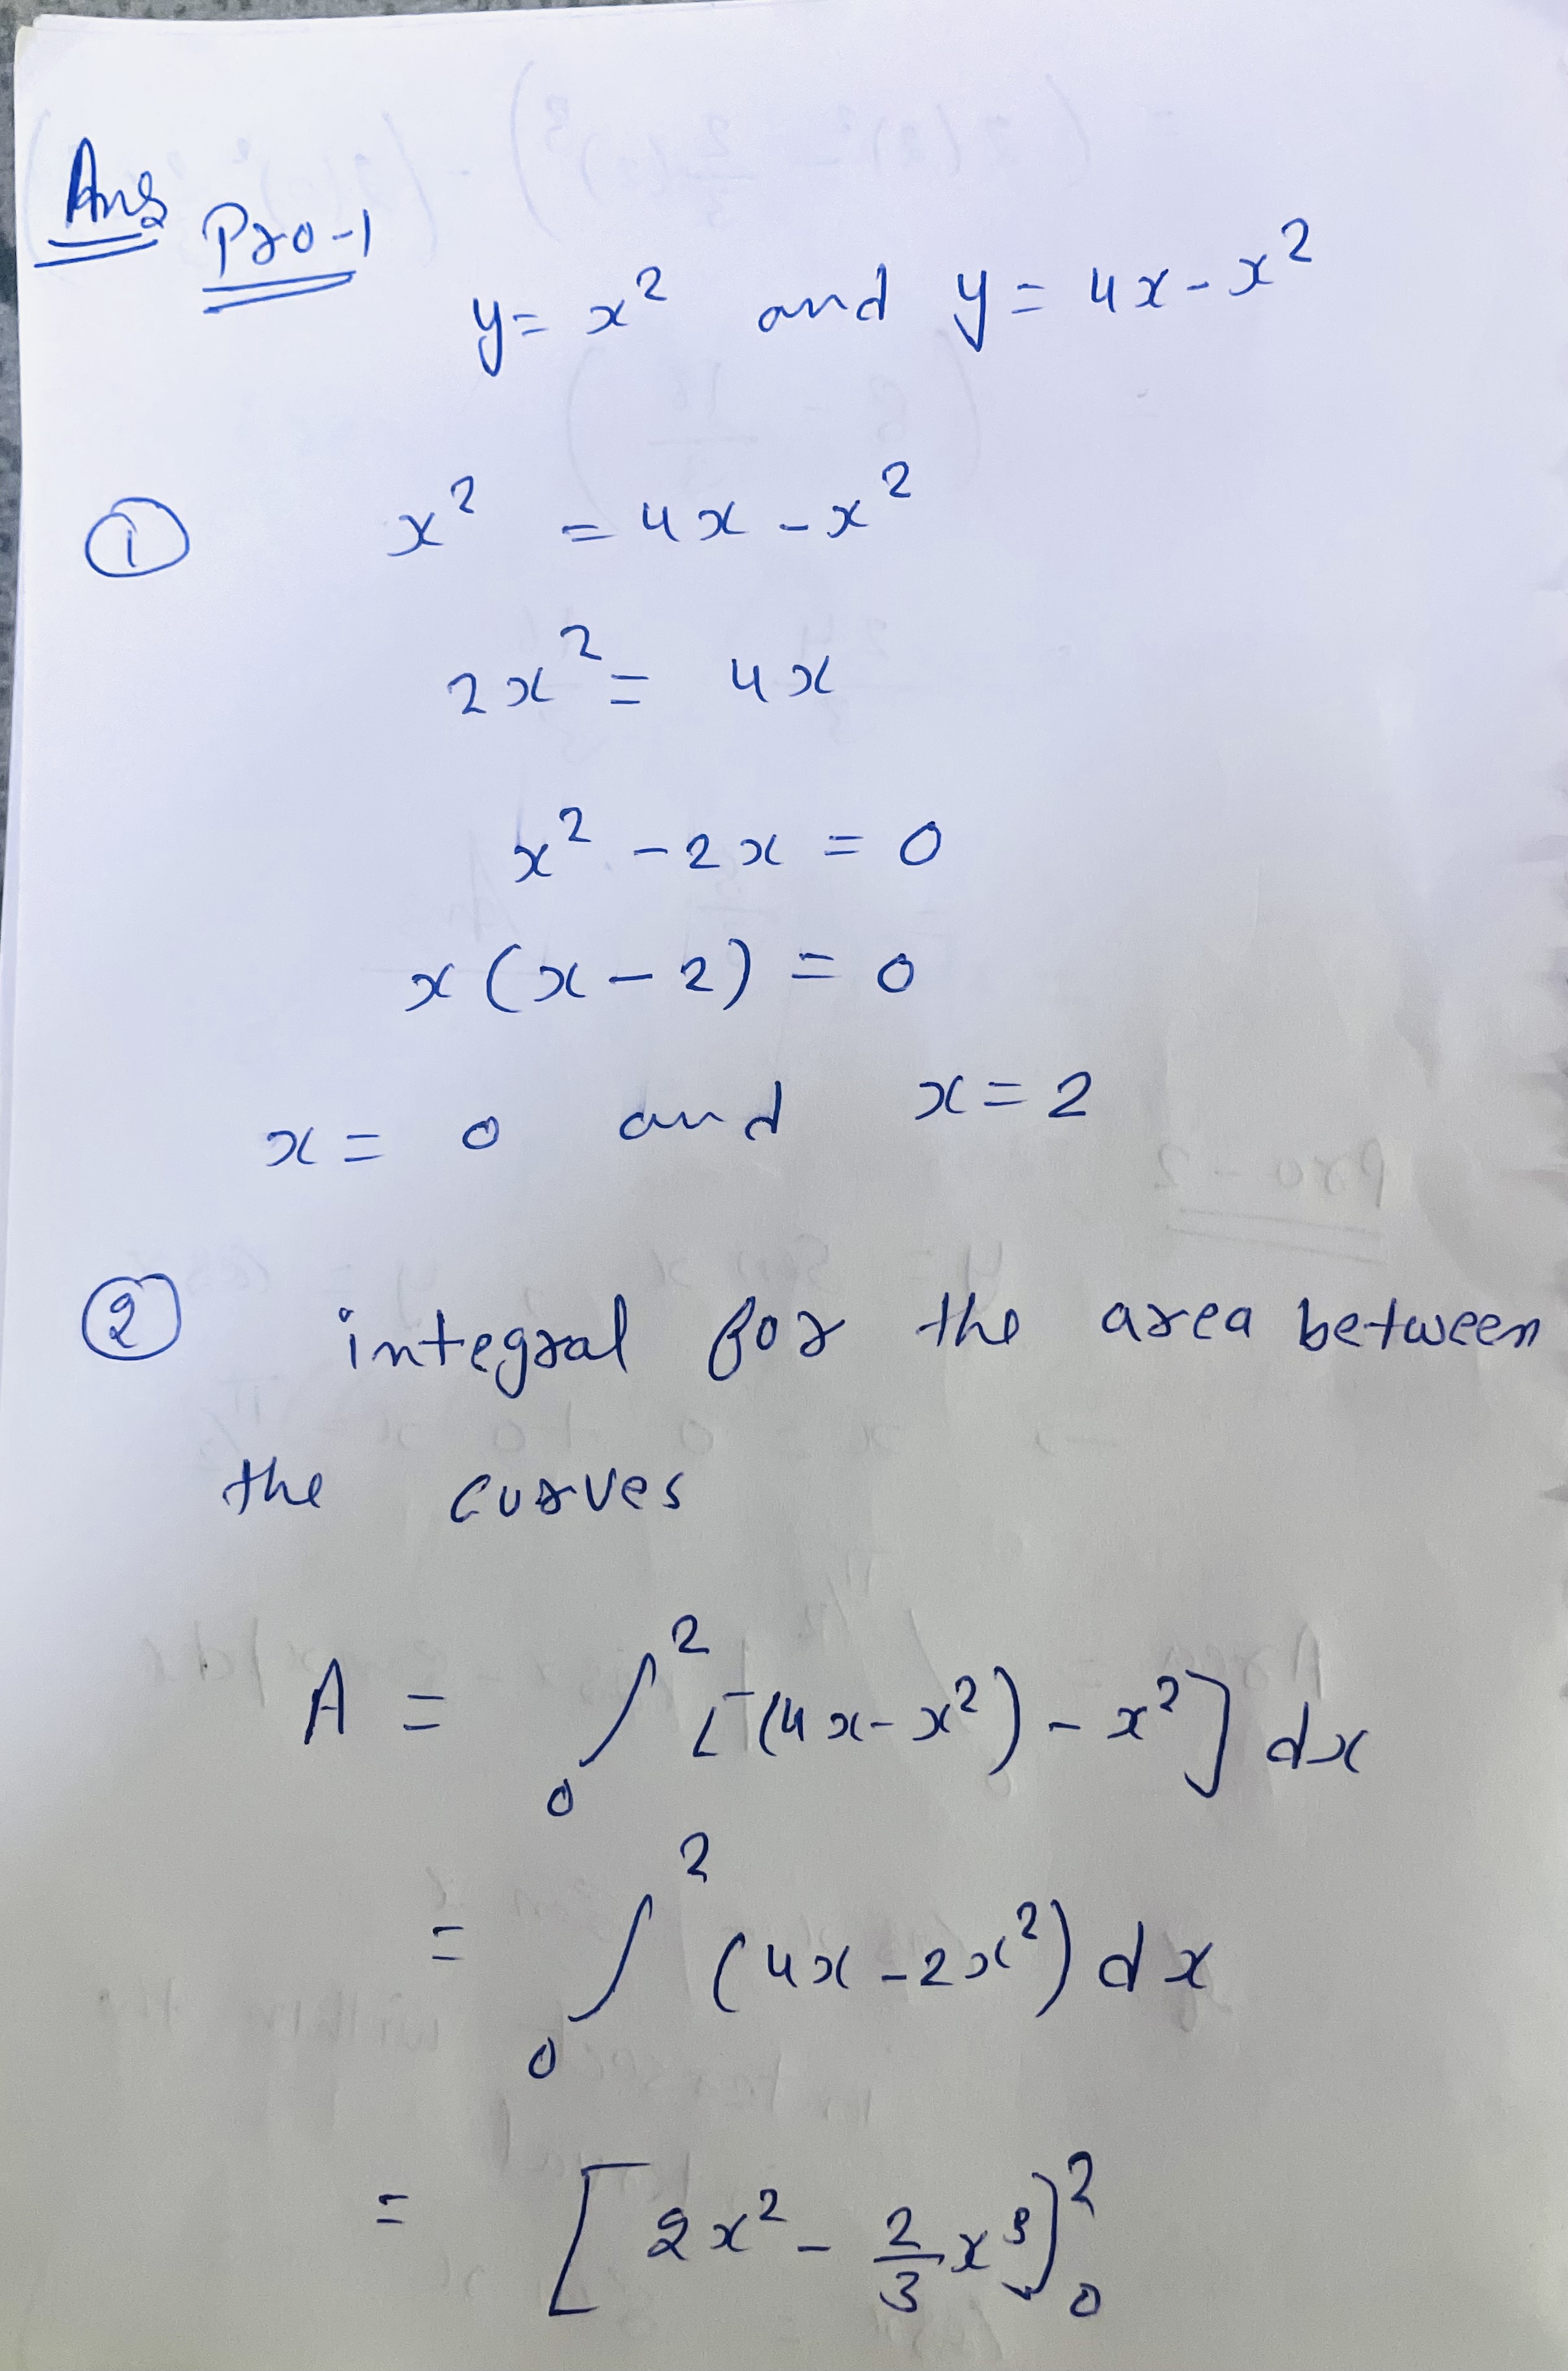 Ans
Pro-1
y = x² and y = 4x - x²
① x² = 4x - x²
2x² = 4x
x² - 2x = 0
x(x - 2) = 0
x = 0 and x = 2
② integral for the area between
the curves
A = ∫₀² [(4x - x²) - x²] dx
= ∫₀² (4x - 2x²) dx
= [2x² - 2/3 x³]₀²